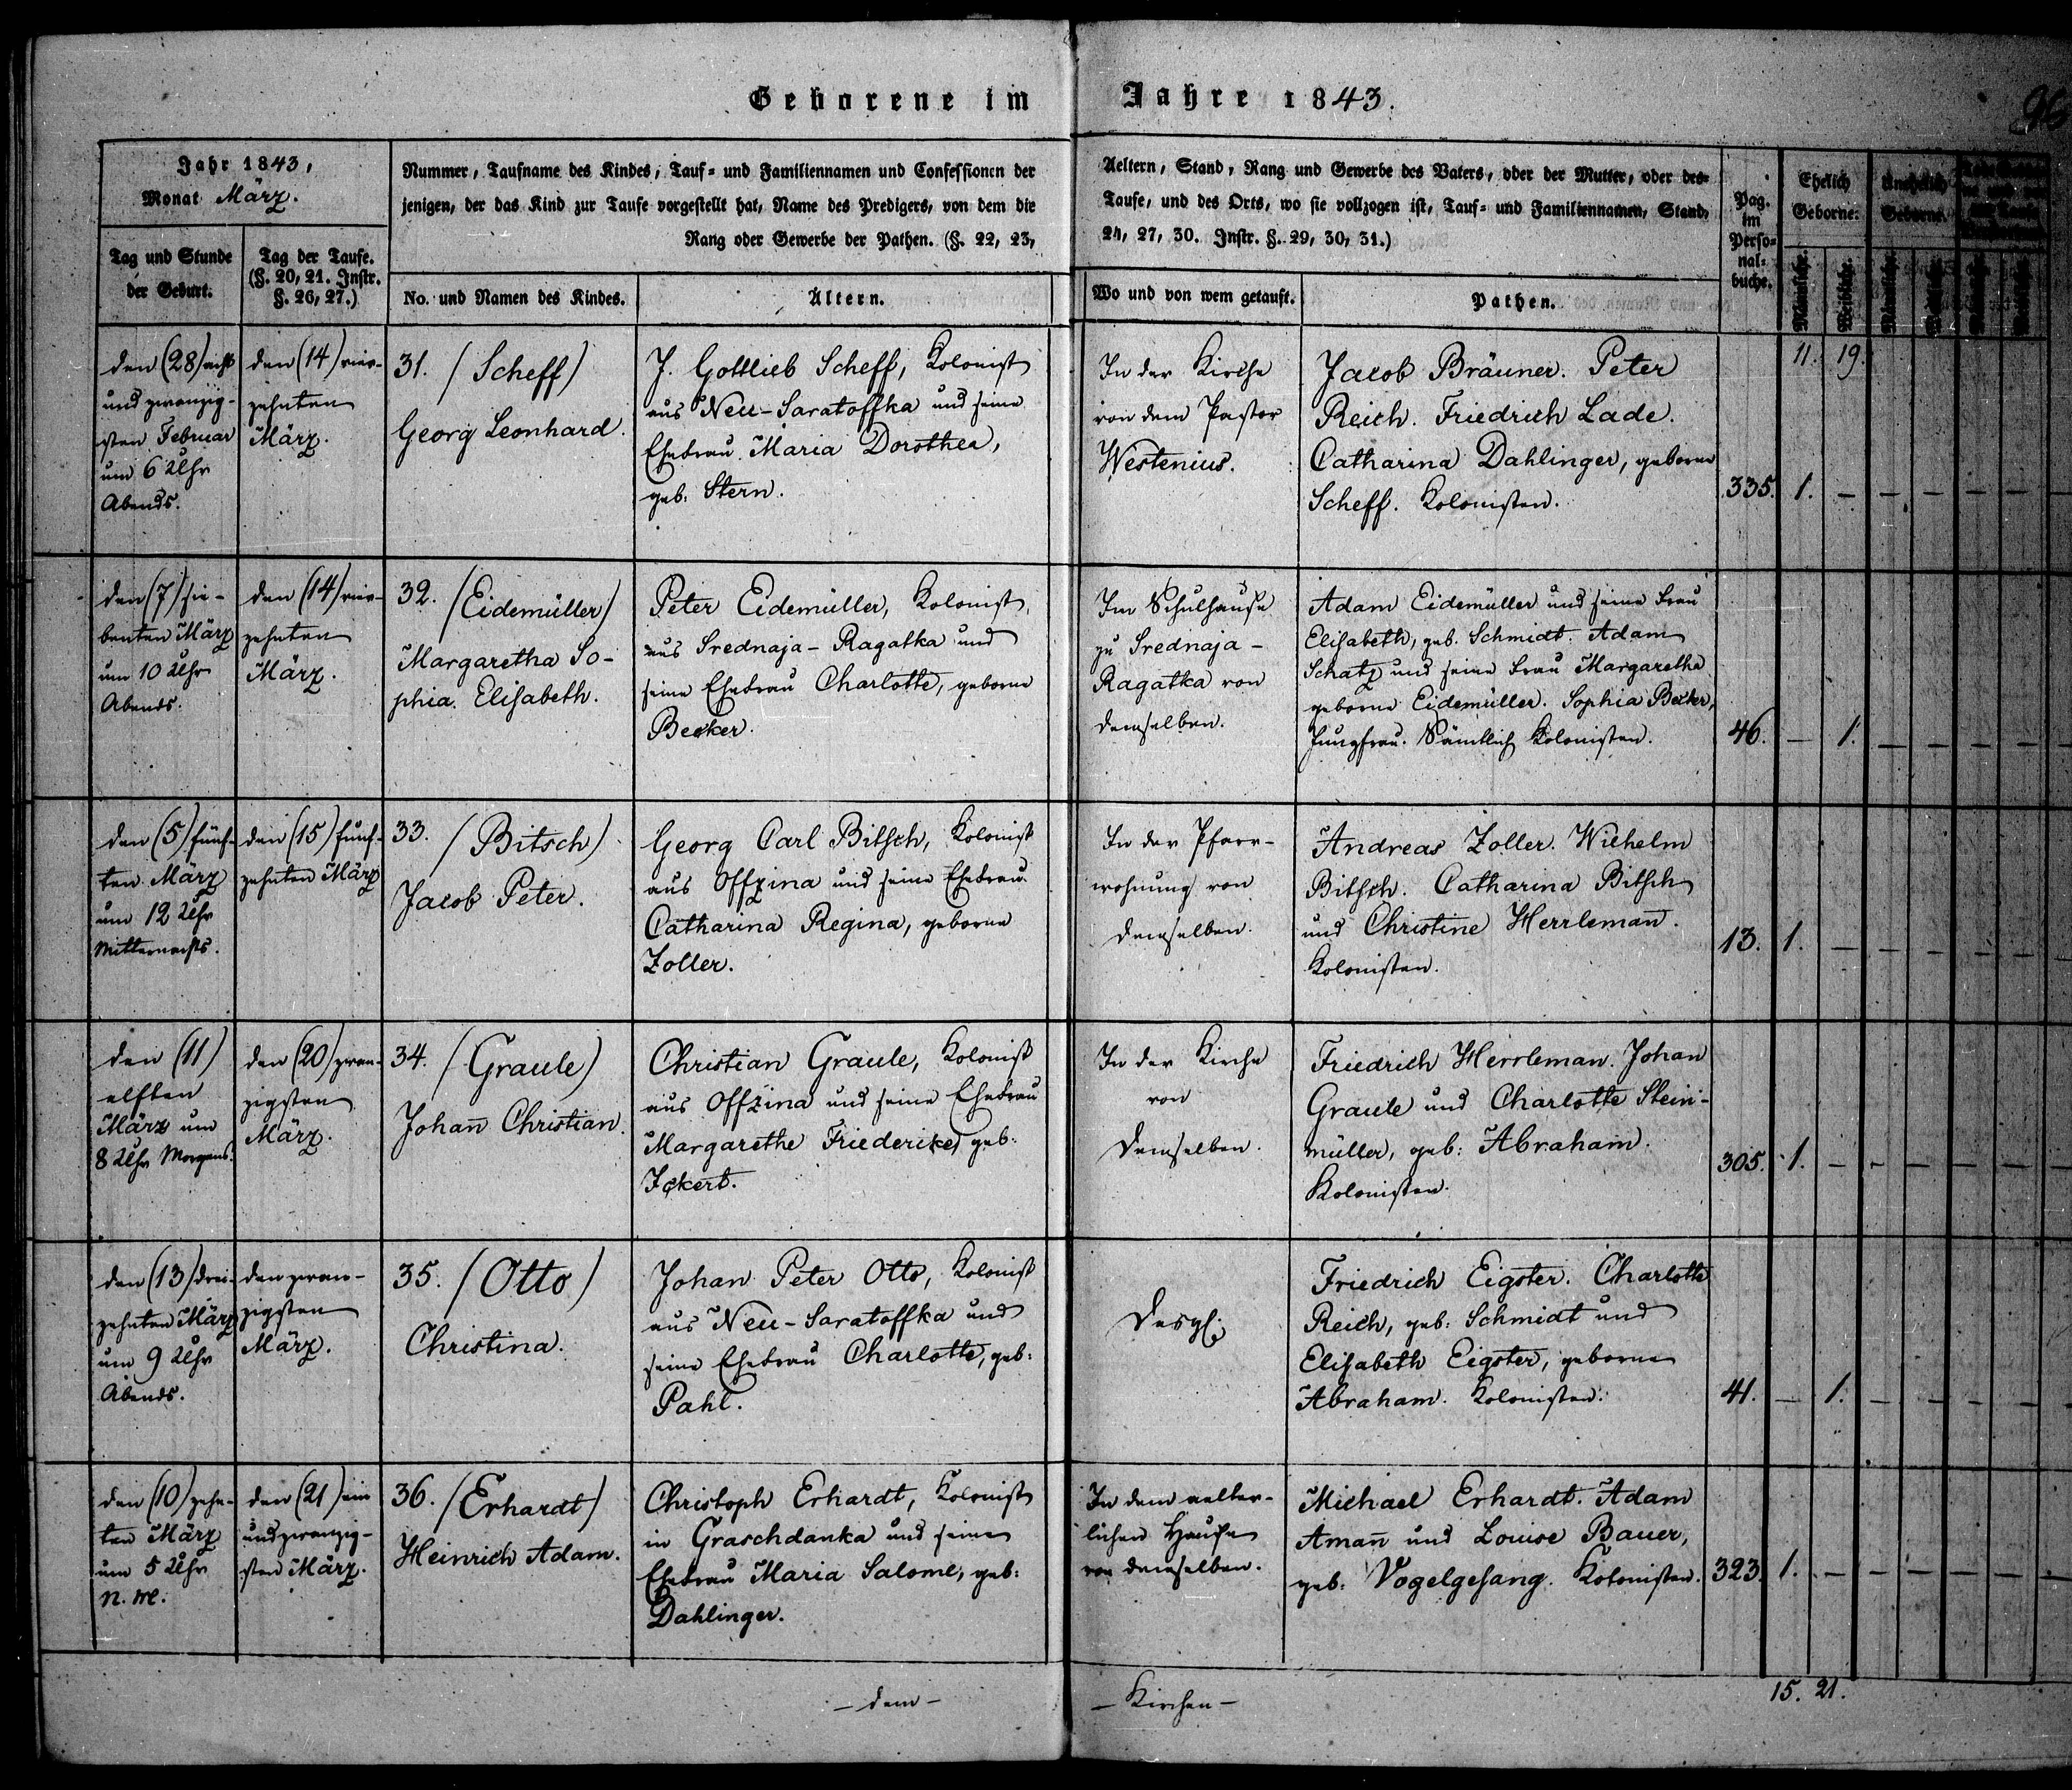 Geborene im Jahre 1843.
Jahr 1843,
Monat März.
Tag und Stunde
der Geburt.
Tag der Taufe.
(§. 20, 21. Instr.
§. 26, 27.)
Nummer, Taufname des Kindes, Tauf- und Familiennamen und Confessionen der
jenigen, der das Kind zur Taufe vorgestellt hat, Name des Predigers, von dem die
Rang oder Gewerbe der Pathen. (§. 22, 23,
No. und Namen des Kindes.
Ältern.
Aeltern, Stand, Rang und Gewerbe des Vaters, oder der Mutter, oder des-
Taufe, und des Orts, wo sie vollzogen ist, Tauf- und Familiennamen, Stand,
24, 27, 30. Instr. §. 29, 30, 31.)
Wo und von wem getauft.
Pathen.
Pag.
im
Perso-
nal-
buche.
Ehelich
Geborne.
Unehelich
Geborne.
Männliche.
Weibliche.
Männliche.
11. 19.
den (28) acht
und zwanzig-
sten Februar
um 6 Uhr
Abends.
den (14) vier-
zehnten
März.
31. (Scheff)
Georg Leonhard.
J. Gottlieb Scheff, Kolonist
aus Neu-Saratoffka und seine
Ehefrau Maria Dorothea,
geb: Stern.
In der Kirche
von dem Pastor
Westenius.
Jacob Bräuner. Peter
Reich. Friedrich Lade.
Catharina Dahlinger, geborne
Scheff. Kolonisten.
335. 1. – – – – –
den (7) sie-
benten März
um 10 Uhr
Abends.
den (14) vier-
zehnten
März.
32. (Eidemüller)
Margaretha So-
phia. Elisabeth.
Peter Eidemüller, Kolonist,
aus Srednaja-Ragatka und
seine Ehefrau Charlotte, geborne
Becker.
Im Schulhause
zu Srednaja-
Ragatka von
demselben.
Adam Eidemüller und seine Frau
Elisabeth, geb. Schmidt. Adam
Schatz und seine Frau Margaretha
geborne Eidemüller. Sophia Becker,
Jungfrau. Sämtlich Kolonisten.
46. – 1. – – – –
den (5) fünf-
ten März
um 12 Uhr
Mitternachts.
den (15) funf-
zehnten März
33. (Bitsch)
Jacob Peter.
Georg Carl Bitsch, Kolonist
aus Offzina und seine Ehefrau
Catharina Regina, geborne
Zoller.
In der Pfarr-
wohnung von
demselben.
Andreas Zoller. Wilhelm
Bitsch. Catharina Bitsch
und Christine Herrleman̄.
Kolonisten.
13. 1. – – – – –
den (11)
elften
März um
8 Uhr Morgens.
den (20) zwan-
zigsten
März.
34. (Graule)
Johan̄ Christian.
Christian Graule, Kolonist
aus Offzina und seine Ehefrau
Margarethe Friederike, geb:
Ickert.
In der Kirche
von
demselben.
Friedrich Herrleman. Johan
Graule und Charlotte Stein-
müller, geb: Abraham.
Kolonisten.
305. 1. – – – – –
den (13) drei-
zehnten März
um 9 Uhr
Abends.
den zwan-
zigsten
März.
35. (Otto)
Christina.
Johan Peter Otto, Kolonist
aus Neu-Saratoffka und
seine Ehefrau Charlotte, geb:
Pahl.
Desgl:
Friedrich Eigster. Charlotte
Reich, geb: Schmidt und
Elisabeth Eigster, geborne
Abraham. Kolonisten.
41. – 1. – – – –
den (10) zehn-
ten März
um 5 Uhr
n. M.
den (21) ein
und zwanzig-
sten März.
36. (Erhardt)
Heinrich Adam.
Christoph Erhardt, Kolonist
in Graschdanka und seine
Ehefrau Maria Salome, geb:
Dahlinger.
In dem aelter-
lichen Hause
von demselben.
Michael Erhardt. Adam
Aman̄ und Louise Bauer,
geb: Vogelgesang. Kolonisten.
323. 1. – – – – –
– dem – – Kirchen –
15. 21.